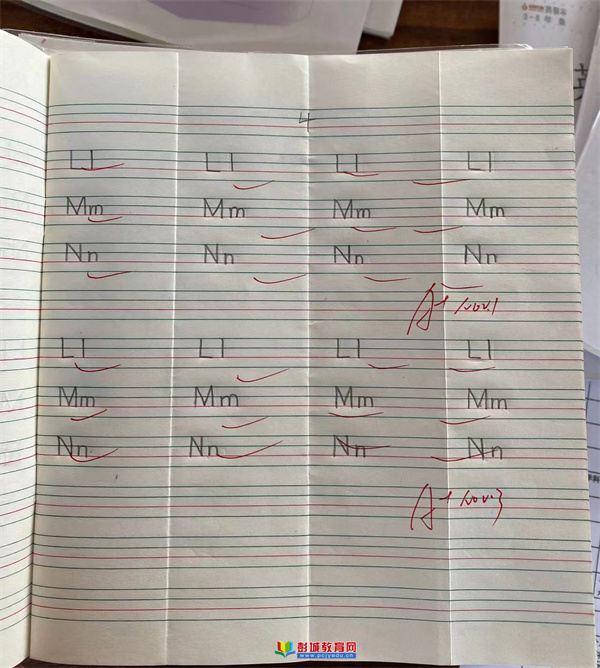 4
Ll Ll Ll Ll
Mm Mm Mm Mm
Nn Nn Nn Nn
A+ Nov.1
Ll Ll Ll Ll
Mm Mm Mm Mm
Nn Nn Nn Nn
A+ Nov.3
彭城教育网
www.pcjyedu.cn